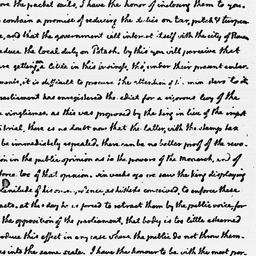 re the packet sails, I have the honor of inclosing them to you.
contain a promise of reducing the duties on tar, pitch & turpen
e, and that the government will interest itself with the city of Rouen
educe the local duty on Potash. by this you will perceive that
are getting a little in this wrangle tho' under their present embar-
ments, it is difficult to procure the attention of the
parliament has enregistered the edict for a rigorous levy of the
vingtiemes. as this was proposed by the king in lieu of the impot
torial, there is no doubt now that the latter, with the stamp tax
be immediately repealed. there can be no better proof of the revo-
ion in the public opinion as to the powers of the monarch, and of
force too of that opinion. six weeks ago we saw the king displaying
plenitude of his power, as he conceived, to enforce these
acts. at this day he is forced to retract them by the public voice, for
the opposition of the parliament, that body is too little esteemed
roduce this effect in any case where the public do not throw them-
es into the same scale. I have the honour to be with the most per-